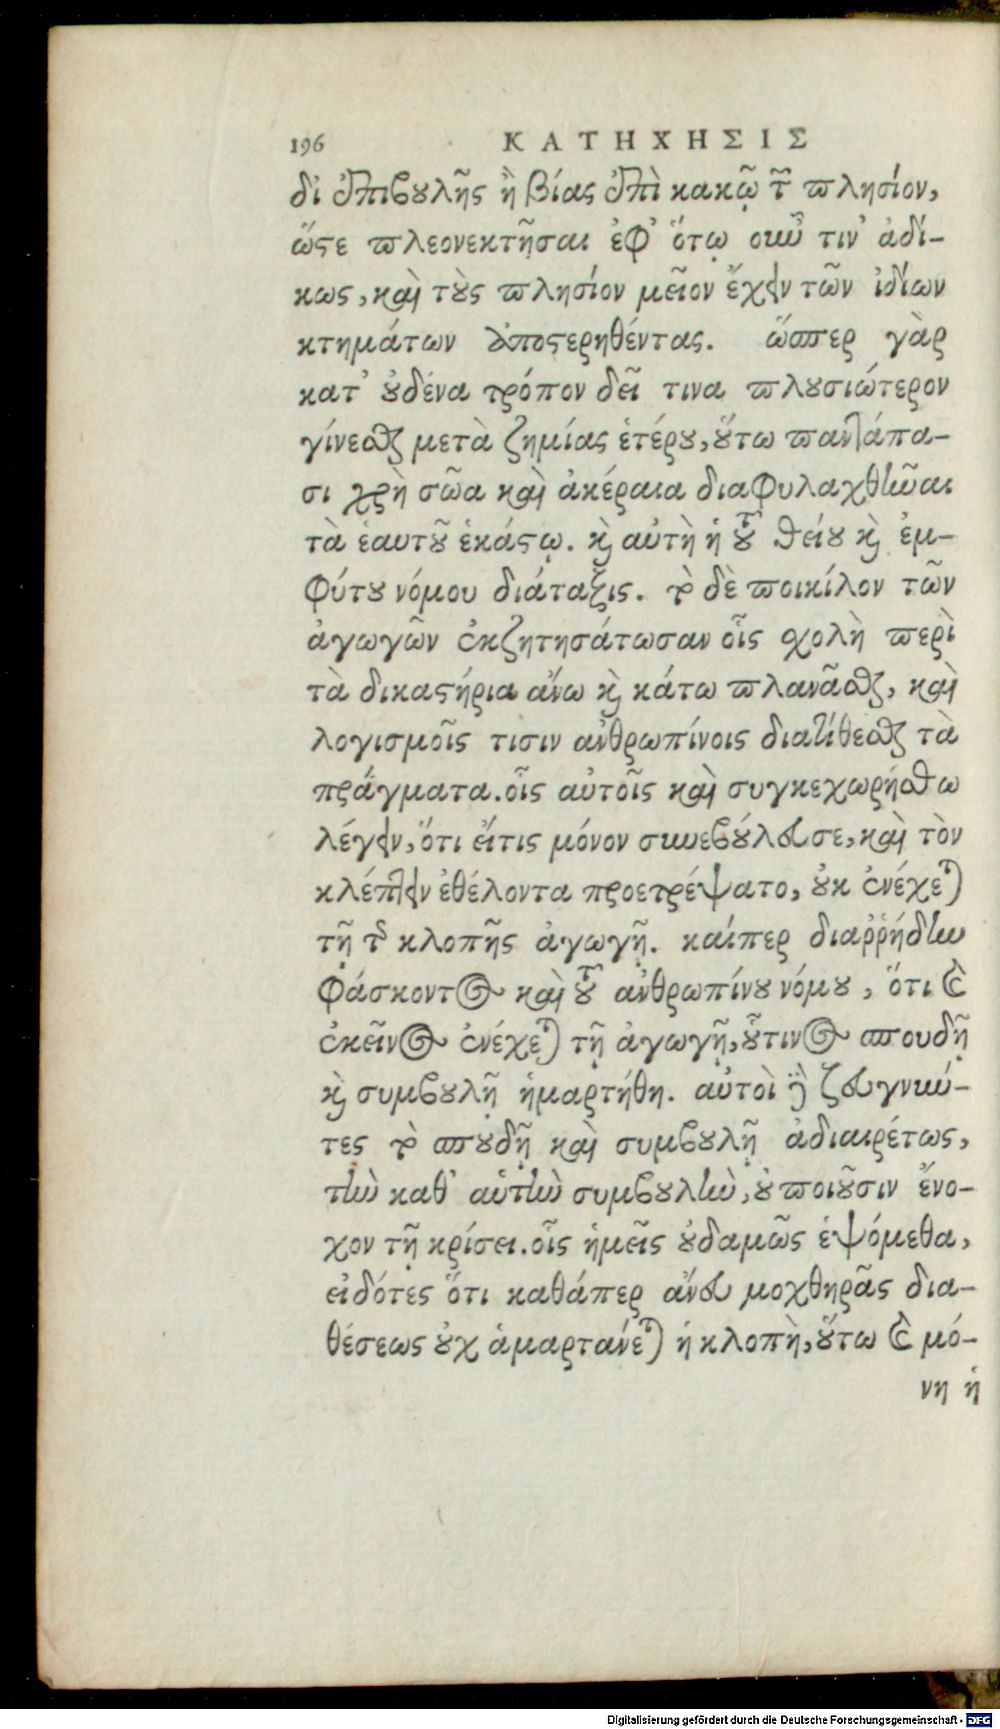 196 ΚΑΤΗΧΗΣΙΣ
δι' ἐπιβουλῆς ἢ βίας ἐπὶ κακῷ τῶν πλησίον,
ὥστε πλεονεκτῆσαι ἐφ' ὅτῳ οὖν τιν' ἀδί-
κως, καὶ τοὺς πλησίον μεῖον ἔχειν τῶν ἰδίων
κτημάτων ἀποστερηθέντας. ὥσπερ γὰρ
κατ' οὐδένα τρόπον δεῖ τινα πλουσιώτερον
γίνεσθαι μετὰ ζημίας ἑτέρου, οὕτω παντάπα-
σι χρὴ σῶα καὶ ἀκέραια διαφυλαχθῆναι
τὰ ἑαυτοῦ ἑκάστῳ. καὶ αὐτὴ ἡ τοῦ θείου καὶ ἐμ-
φύτου νόμου διάταξις. τὸ δὲ ποικίλον τῶν
ἀγωγῶν ἐκζητησάτωσαν οἷς σχολὴ περὶ
τὰ δικαστήρια ἄνω καὶ κάτω πλανᾶσθαι, καὶ
λογισμοῖς τισιν ἀνθρωπίνοις διατίθεσθαι τὰ
πράγματα. οἷς αὐτοῖς καὶ συγκεχωρήσθω
λέγειν, ὅτι εἴτις μόνον συνεβούλευσε, καὶ τὸν
κλέπτειν ἐθέλοντα προετρέψατο, οὐκ ἐνέχεται
τῇ τῆς κλοπῆς ἀγωγῇ. καίπερ διαῤῥήδην
φάσκοντος καὶ τοῦ ἀνθρωπίνου νόμου, ὅτι καὶ
ἐκεῖνος ἐνέχεται τῇ ἀγωγῇ, οὗτινος σπουδῇ
καὶ συμβουλῇ ἡμαρτήθη. αὐτοὶ γὰρ ζευγνύν-
τες τὸ σπουδῇ καὶ συμβουλῇ ἀδιαιρέτως,
τὴν καθ' αὑτὴν συμβουλὴν, οὐ ποιοῦσιν ἔνο-
χον τῇ κρίσει. οἷς ἡμεῖς οὐδαμῶς ἑψόμεθα,
εἰδότες ὅτι καθάπερ ἄνευ μοχθηρᾶς δια-
θέσεως οὐχ ἁμαρτάνεται ἡ κλοπὴ, οὕτω καὶ μό-
νη ἡ
Digitalisierung gefördert durch die Deutsche Forschungsgemeinschaft - DFG